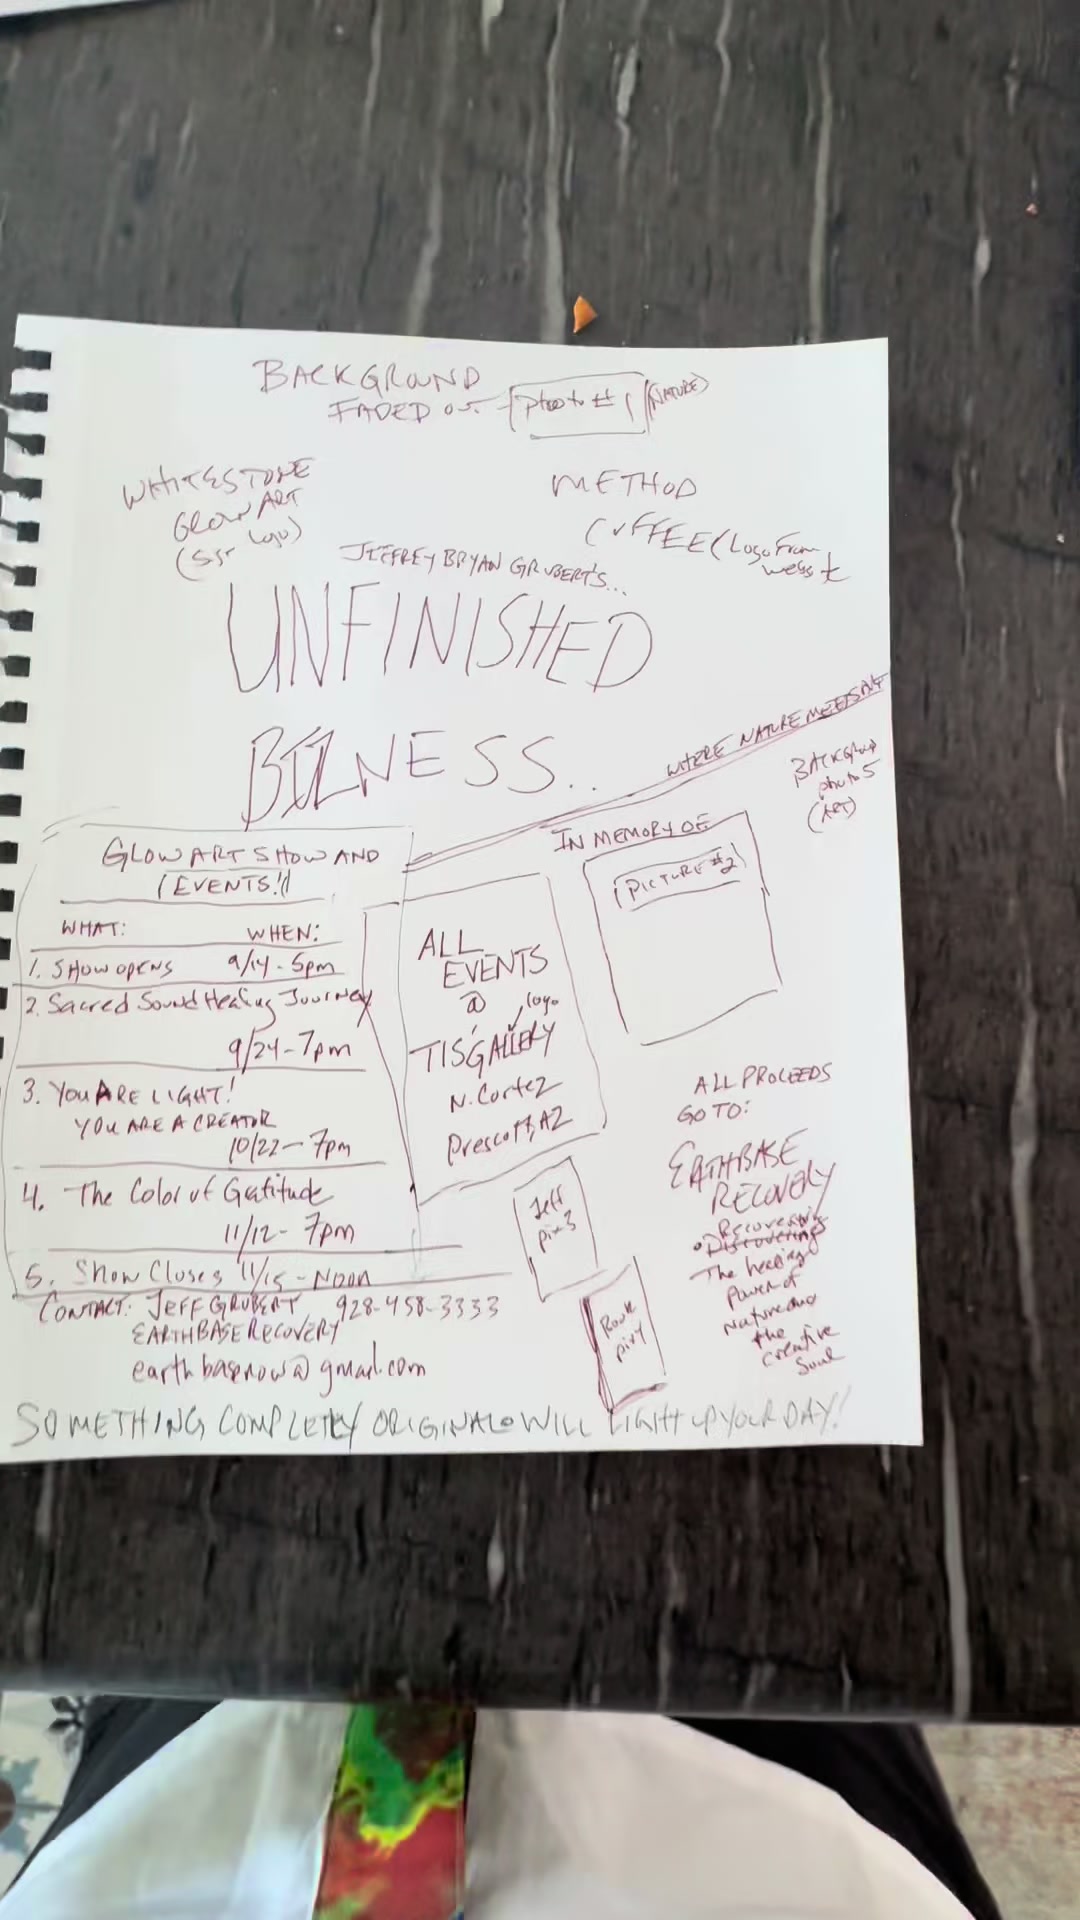 BACKGROUND
FADED OUT - photo # 1 (NATURE)
WHITESTONE
GLOW ART
(SST logo)
METHOD
COFFEE (Logo From
JEFFREY BRYAN GRUBERT'S...
UNFINISHED
BIZNESS...
WHERE NATURE MEETS ART
BACKGROUND
photo 5
(ART)
GLOW ART SHOW AND
EVENTS!
WHAT: WHEN:
1. SHOW OPENS 9/14 - 5pm
2. Sacred Sound Healing Journey
9/24 - 7pm
3. YOU ARE LIGHT!
YOU ARE A CREATOR
10/22 - 7pm
4. The Color of Gatitude
11/12 - 7pm
5. Show Closes 11/15 - NOON
CONTACT: JEFF GRUBERT 928-458-3333
EARTHBASE RECOVERY
earthbasenow@gmail.com
ALL
EVENTS
@ logo
TIS GALLERY
N. Cortez
Prescott, AZ
IN MEMORY OF
(PICTURE #2)
Jeff
pic 3
ALL PROCEEDS
GO TO:
EARTHBASE
RECOVERY
Discovering
The healing
Power of
Nature and
the
creative
Soul
SOMETHING COMPLETLY ORIGINAL WILL LIGHT UP YOUR DAY!